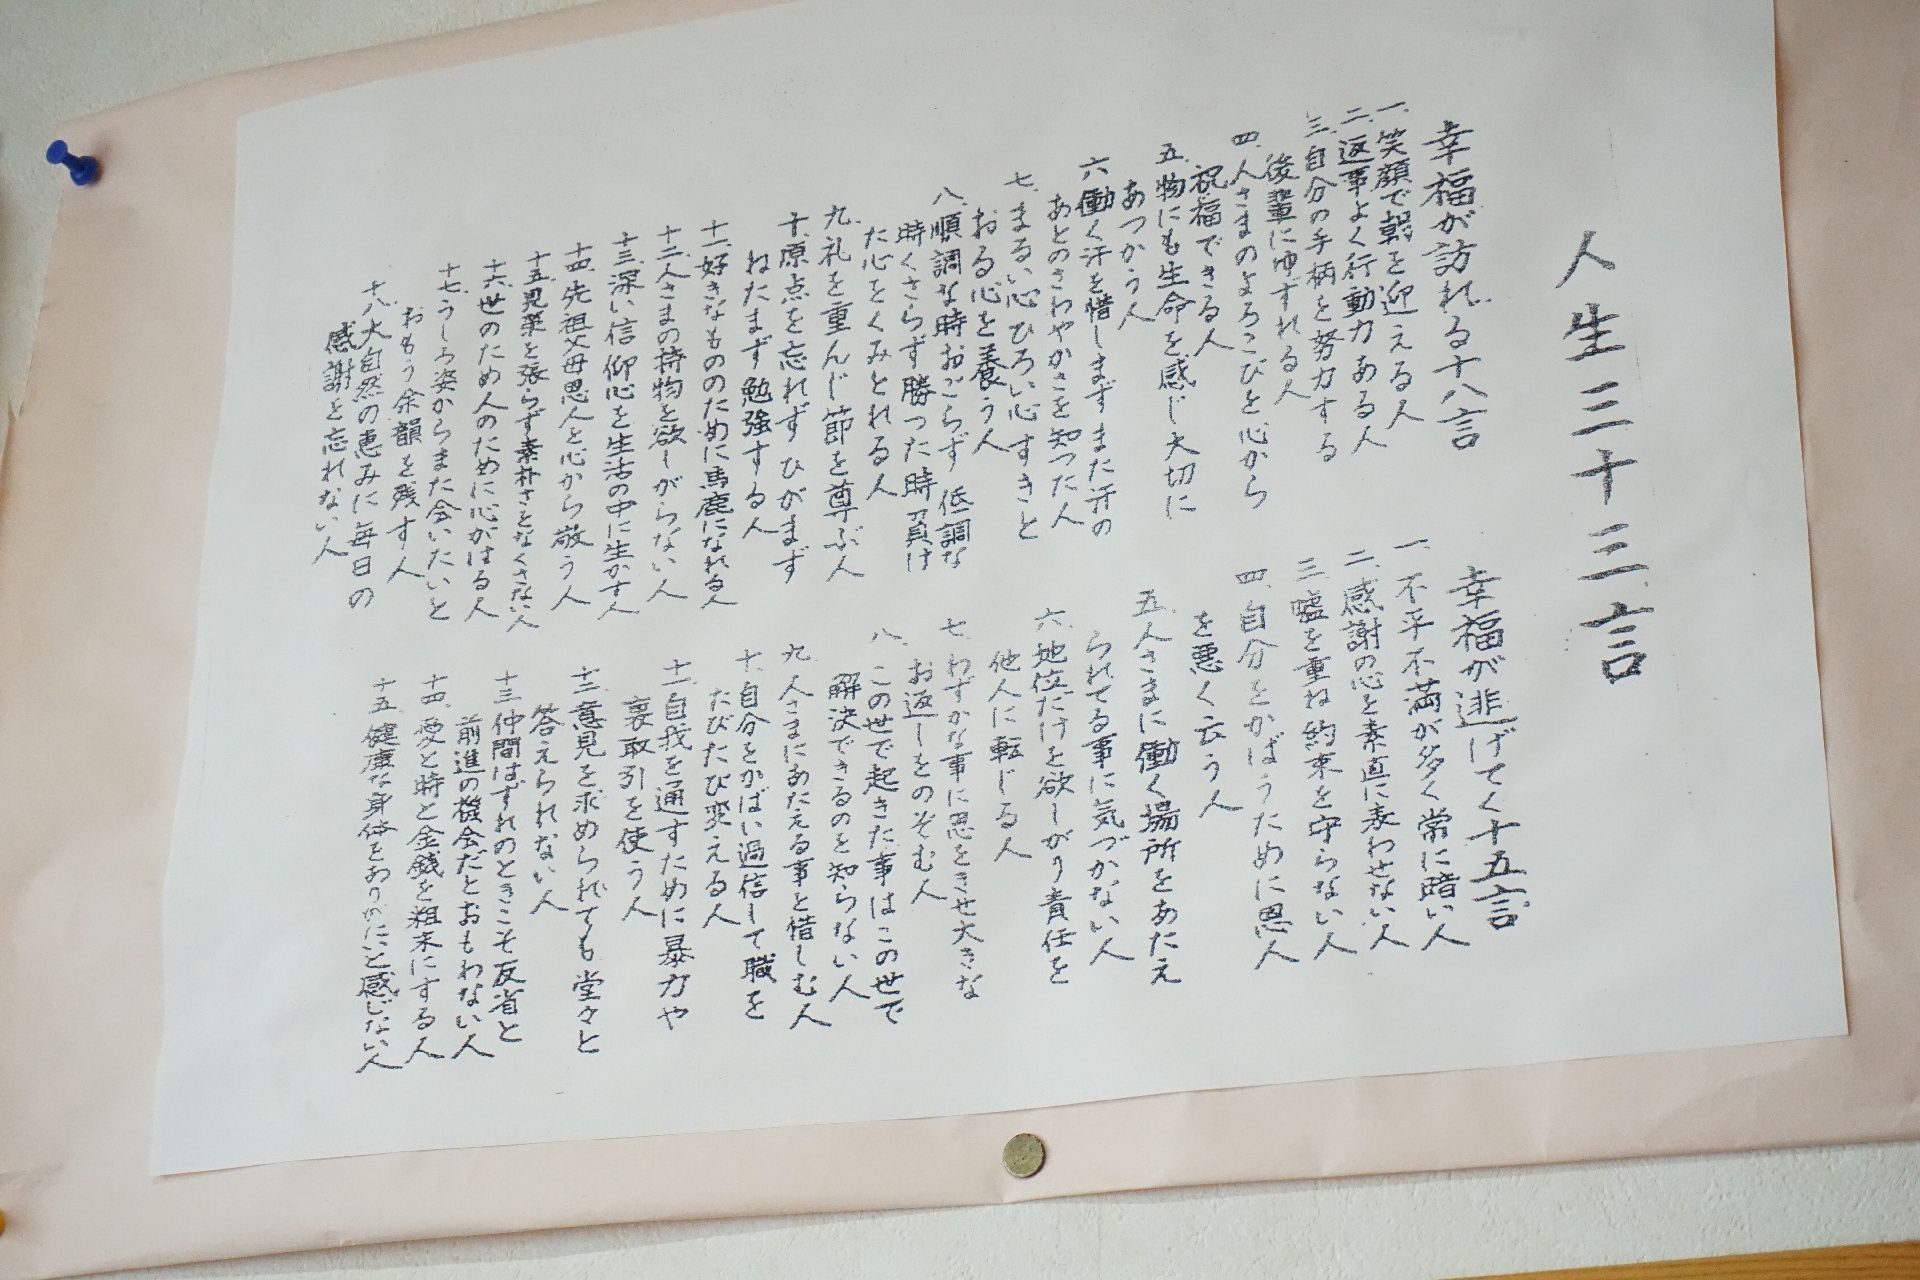 人生三十三言
幸福が訪れる十八言
一、笑顔で朝を迎える人
二、返事よく行動力ある人
三、自分の手柄を努力する
後輩にゆずれる人
四、人さまのよろこびを心から
祝福できる人
五、物にも生命を感じ大切に
あつかう人
六、働く汗を惜しまずまた汗の
あとのさわやかさを知った人
七、まるい心ひろい心すきと
おる心を養う人
八、順調な時おごらず低調な
時くさらず勝った時負け
た心をくみとれる人
九、礼を重んじ節を尊ぶ人
十、原点を忘れずひがまず
ねたまず勉強する人
十一、好きなもののために馬鹿になれる人
十二、人さまの持物を欲しがらない人
十三、深い信仰心を生活の中に生かす人
十四、先祖父母恩人を心から敬う人
十五、見栄を張らず素朴さをなくさない人
十六、世のため人のために心がける人
十七、うしろ姿からまた会いたいと
おもう余韻を残す人
十八、大自然の恵みに毎日の
感謝を忘れない人
幸福が逃げてく十五言
一、不平不満が多く常に暗い人
二、感謝の心を素直に表わせない人
三、嘘を重ね約束を守らない人
四、自分をかばうために恩人
を悪く云う人
五、人さまに働く場所をあたえ
られてる事に気づかない人
六、地位だけを欲しがり責任を
他人に転じる人
七、わずかな事に恩をきせ大きな
お返しをのぞむ人
八、この世で起きた事はこの世で
解決できるのを知らない人
九、人さまにあたえる事を惜しむ人
十、自分をかばい過信して職を
たびたび変える人
十一、自我を通すために暴力や
裏取引を使う人
十二、意見を求められても堂々と
答えられない人
十三、仲間はずれのときこそ反省と
前進の機会だとおもわない人
十四、愛と時と金銭を粗末にする人
十五、健康な身体をありがたいと感じない人